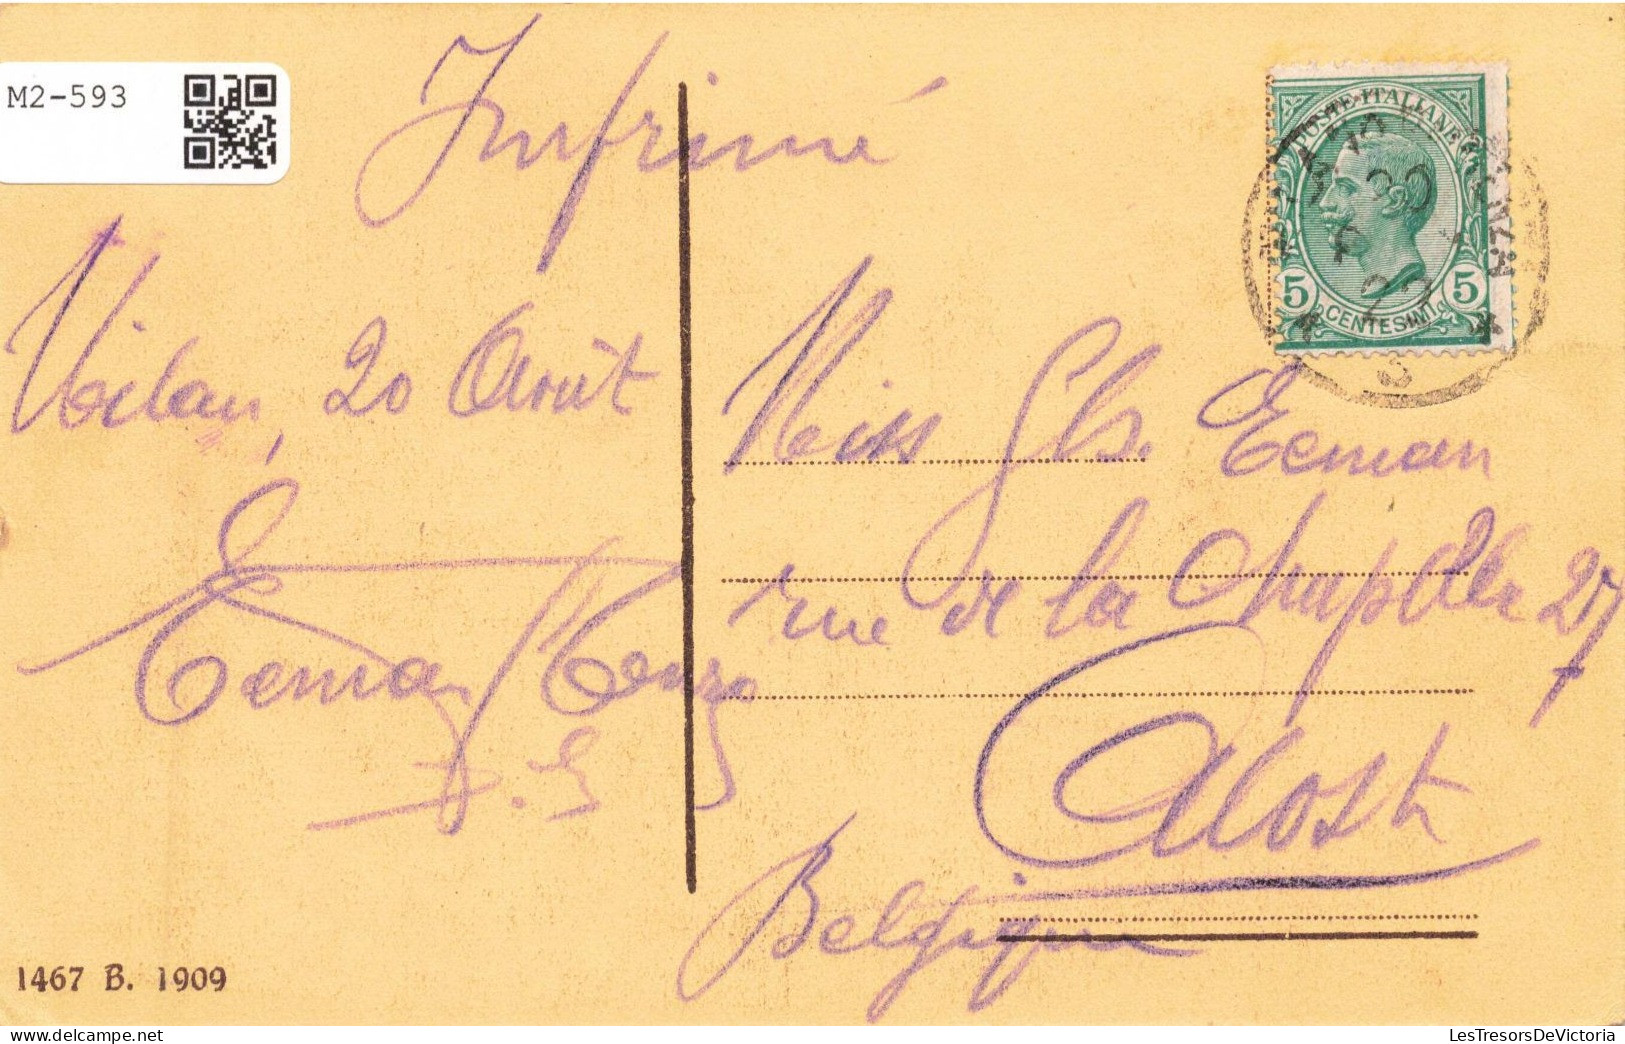 M2-593
Imprimé
POSTE ITALIANE
5 5
CENTESIMI
MILANO
20
22
Milan, 20 Août
Miss Gh. Eeman
rue de la Chapelle 27
Alost
Belgique
Eeman
1467 B. 1909
LesTresorsDeVictoria